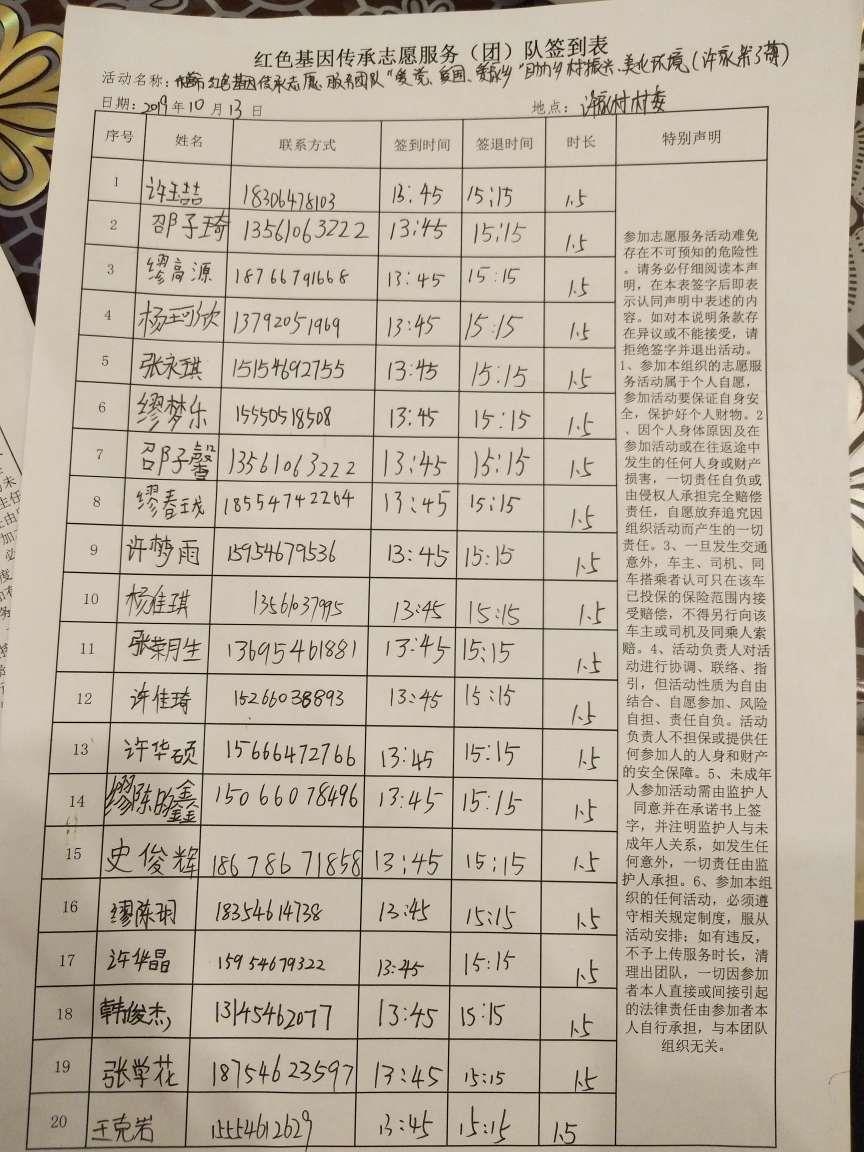 红色基因传承志愿服务（团）队签到表
活动名称： 红色基因传承志愿服务团队"爱党、爱国、爱家乡"助力乡村振兴、美化环境（许家第3尊）
日期：2019年10月13日 地点：许家村村委
序号 姓名 联系方式 签到时间 签退时间 时长 特别声明
1 许玉喆 18306478103 13:45 15:15 1.5
2 邵子琦 13561063222 13:45 15:15 1.5
3 缪高源 18766791668 13:45 15:15 1.5
4 杨珂欣 13792051969 13:45 15:15 1.5
5 张永琪 15154692755 13:45 15:15 1.5
6 缪梦乐 15550518508 13:45 15:15 1.5
7 邵子馨 13561063222 13:45 15:15 1.5
8 缪春 18554742264 13:45 15:15 1.5
9 许梦雨 15954679536 13:45 15:15 1.5
10 杨佳琪 1356037995 13:45 15:15 1.5
11 张荣月生 13695461881 13:45 15:15 1.5
12 许佳琦 15266038893 13:45 15:15 1.5
13 许华硕 15666472766 13:45 15:15 1.5
14 缪陈昀鑫 15066078496 13:45 15:15 1.5
15 史俊辉 18678671858 13:45 15:15 1.5
16 缪陈玥 18354614738 13:45 15:15 1.5
17 许华晶 15954679322 13:45 15:15 1.5
18 韩俊杰 13145462077 13:45 15:15 1.5
19 张学花 18754623597 13:45 15:15 1.5
20 王克岩 15554612629 13:45 15:15 1.5
参加志愿服务活动难免
存在不可预知的危险性
。请务必仔细阅读本声
明，在本表签字后即表
示认同声明中表述的内
容。如对本说明条款存
在异议或不能接受，请
拒绝签字并退出活动。
1、参加本组织的志愿服
务活动属于个人自愿，
参加活动要保证自身安
全，保护好个人财物。2
、因个人身体原因及在
参加活动或在往返途中
发生的任何人身或财产
损害，一切责任自负或
由侵权人承担完全赔偿
责任，自愿放弃追究因
组织活动而产生的一切
责任。3、一旦发生交通
意外，车主、司机、同
车搭乘者认可只在该车
已投保的保险范围内接
受赔偿，不得另行向该
车主或司机及同乘人索
赔。4、活动负责人对活
动进行协调、联络、指
引，但活动性质为自由
结合、自愿参加、风险
自担、责任自负。活动
负责人不担保或提供任
何参加人的人身和财产
的安全保障。5、未成年
人参加活动需由监护人
同意并在承诺书上签
字，并注明监护人与未
成年人关系，如发生任
何意外，一切责任由监
护人承担。6、参加本组
织的任何活动，必须遵
守相关规定制度，服从
活动安排；如有违反，
不予上传服务时长，清
理出团队，一切因参加
者本人直接或间接引起
的法律责任由参加者本
人自行承担，与本团队
组织无关。